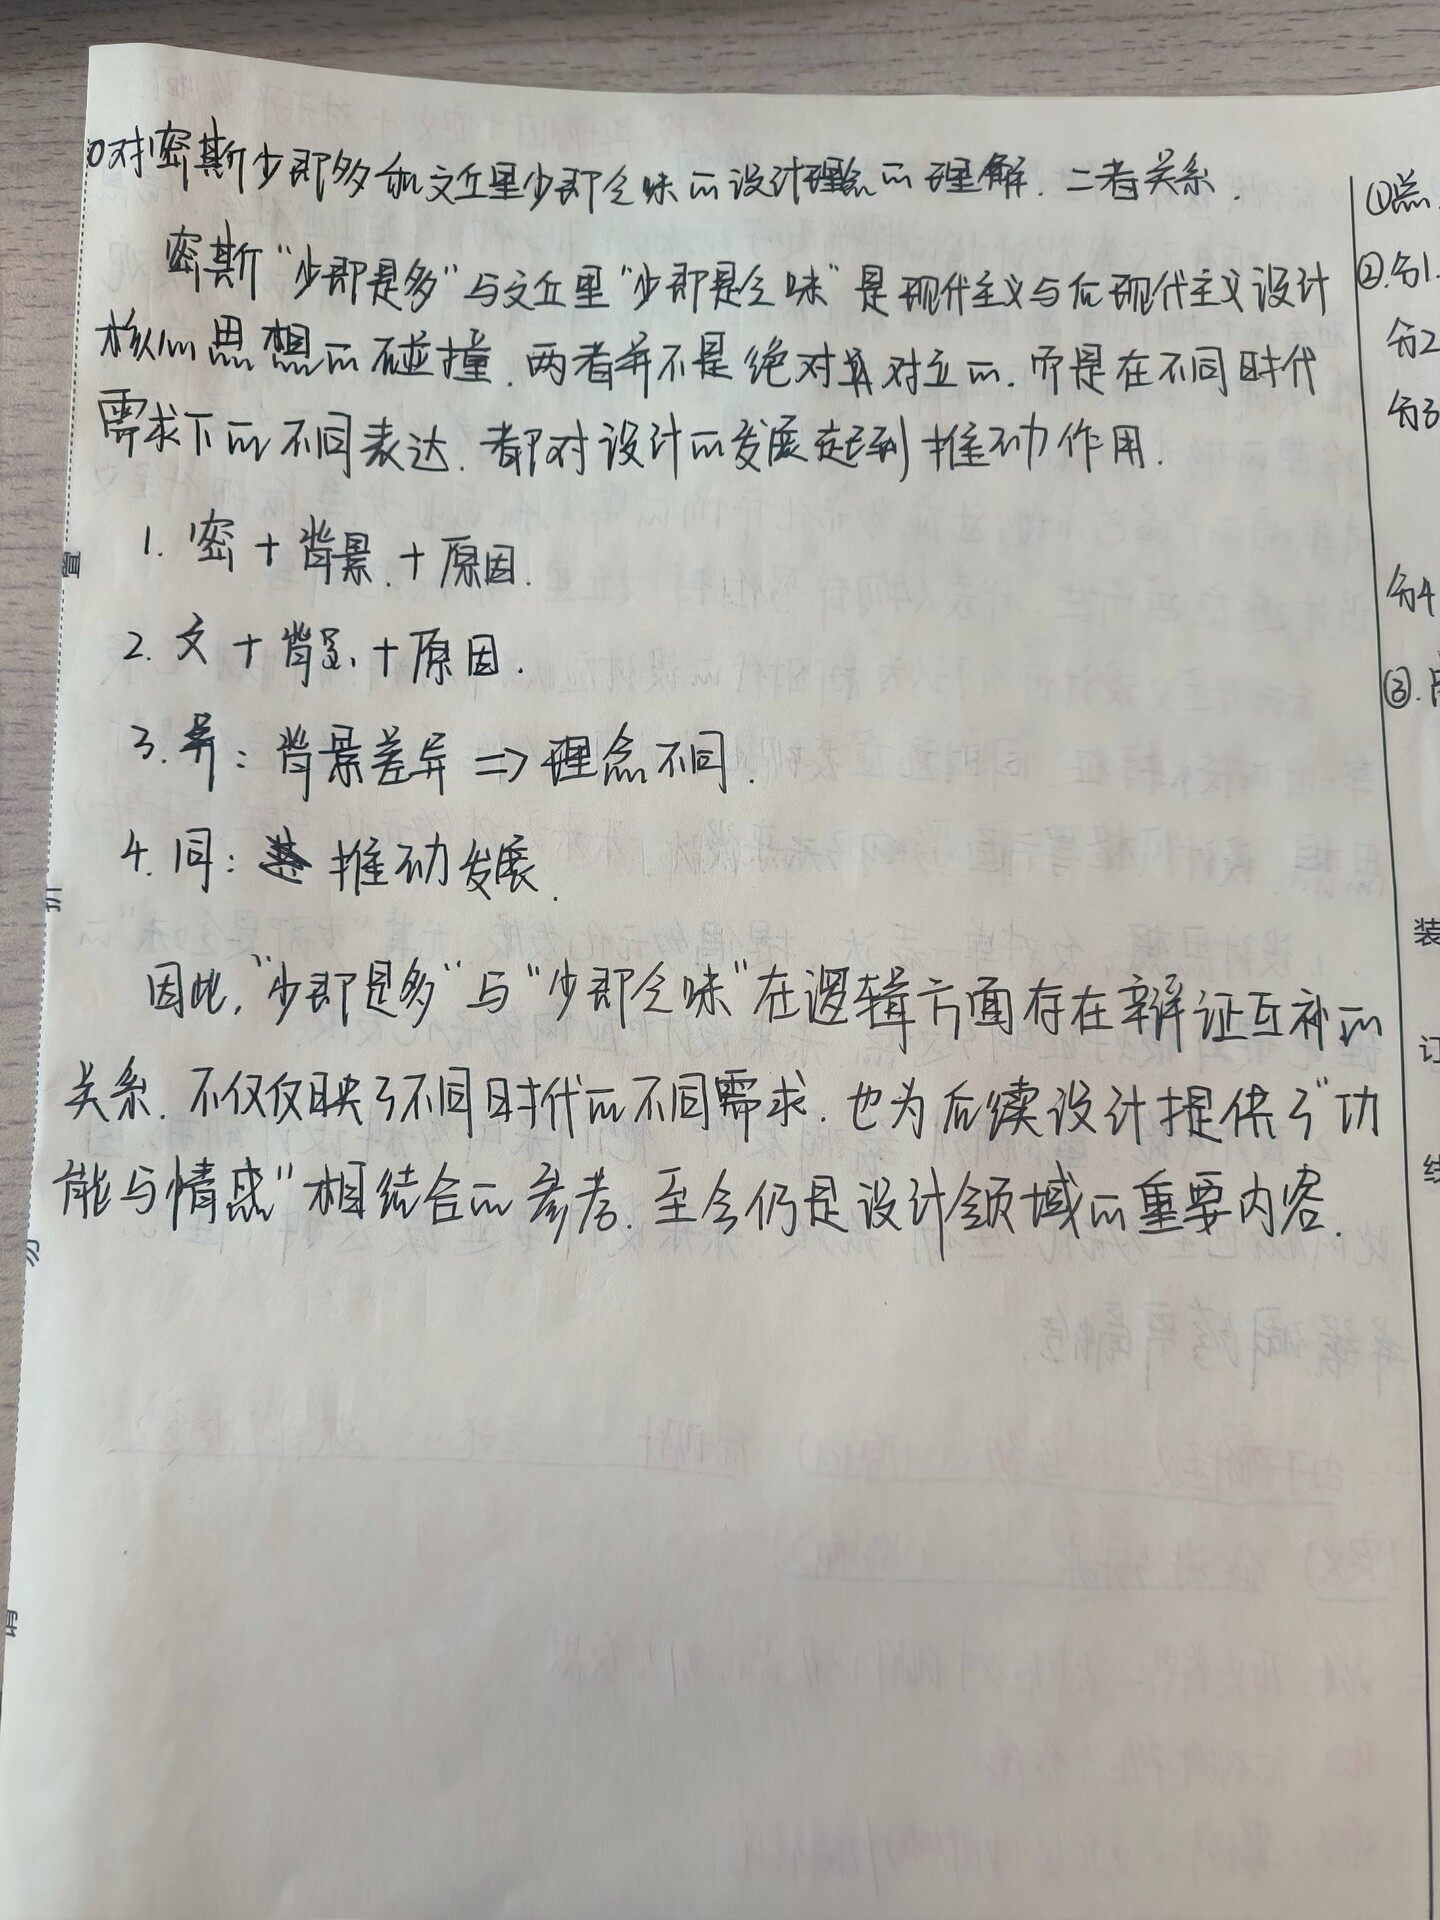 对密斯少即多和文丘里少即乏味的设计理念的理解.二者关系.
密斯"少即是多"与文丘里"少即是乏味"是现代主义与后现代主义设计
核心思想的碰撞.两者并不是绝对对立的.而是在不同时代
需求下的不同表达.都对设计的发展起到推动作用.
1. 密+背景.+原因.
2. 文+背景+原因.
3. 异:背景差异⇒理念不同.
4. 同: 推动发展.
因此,"少即是多"与"少即乏味"在逻辑方面存在辩证互补的
关系.不仅仅映了不同时代的不同需求.也为后续设计提供了"功
能与情感"相结合的参考.至今仍是设计领域的重要内容.
①点.
②.分1.
分2
分3
分4
③.
装
订